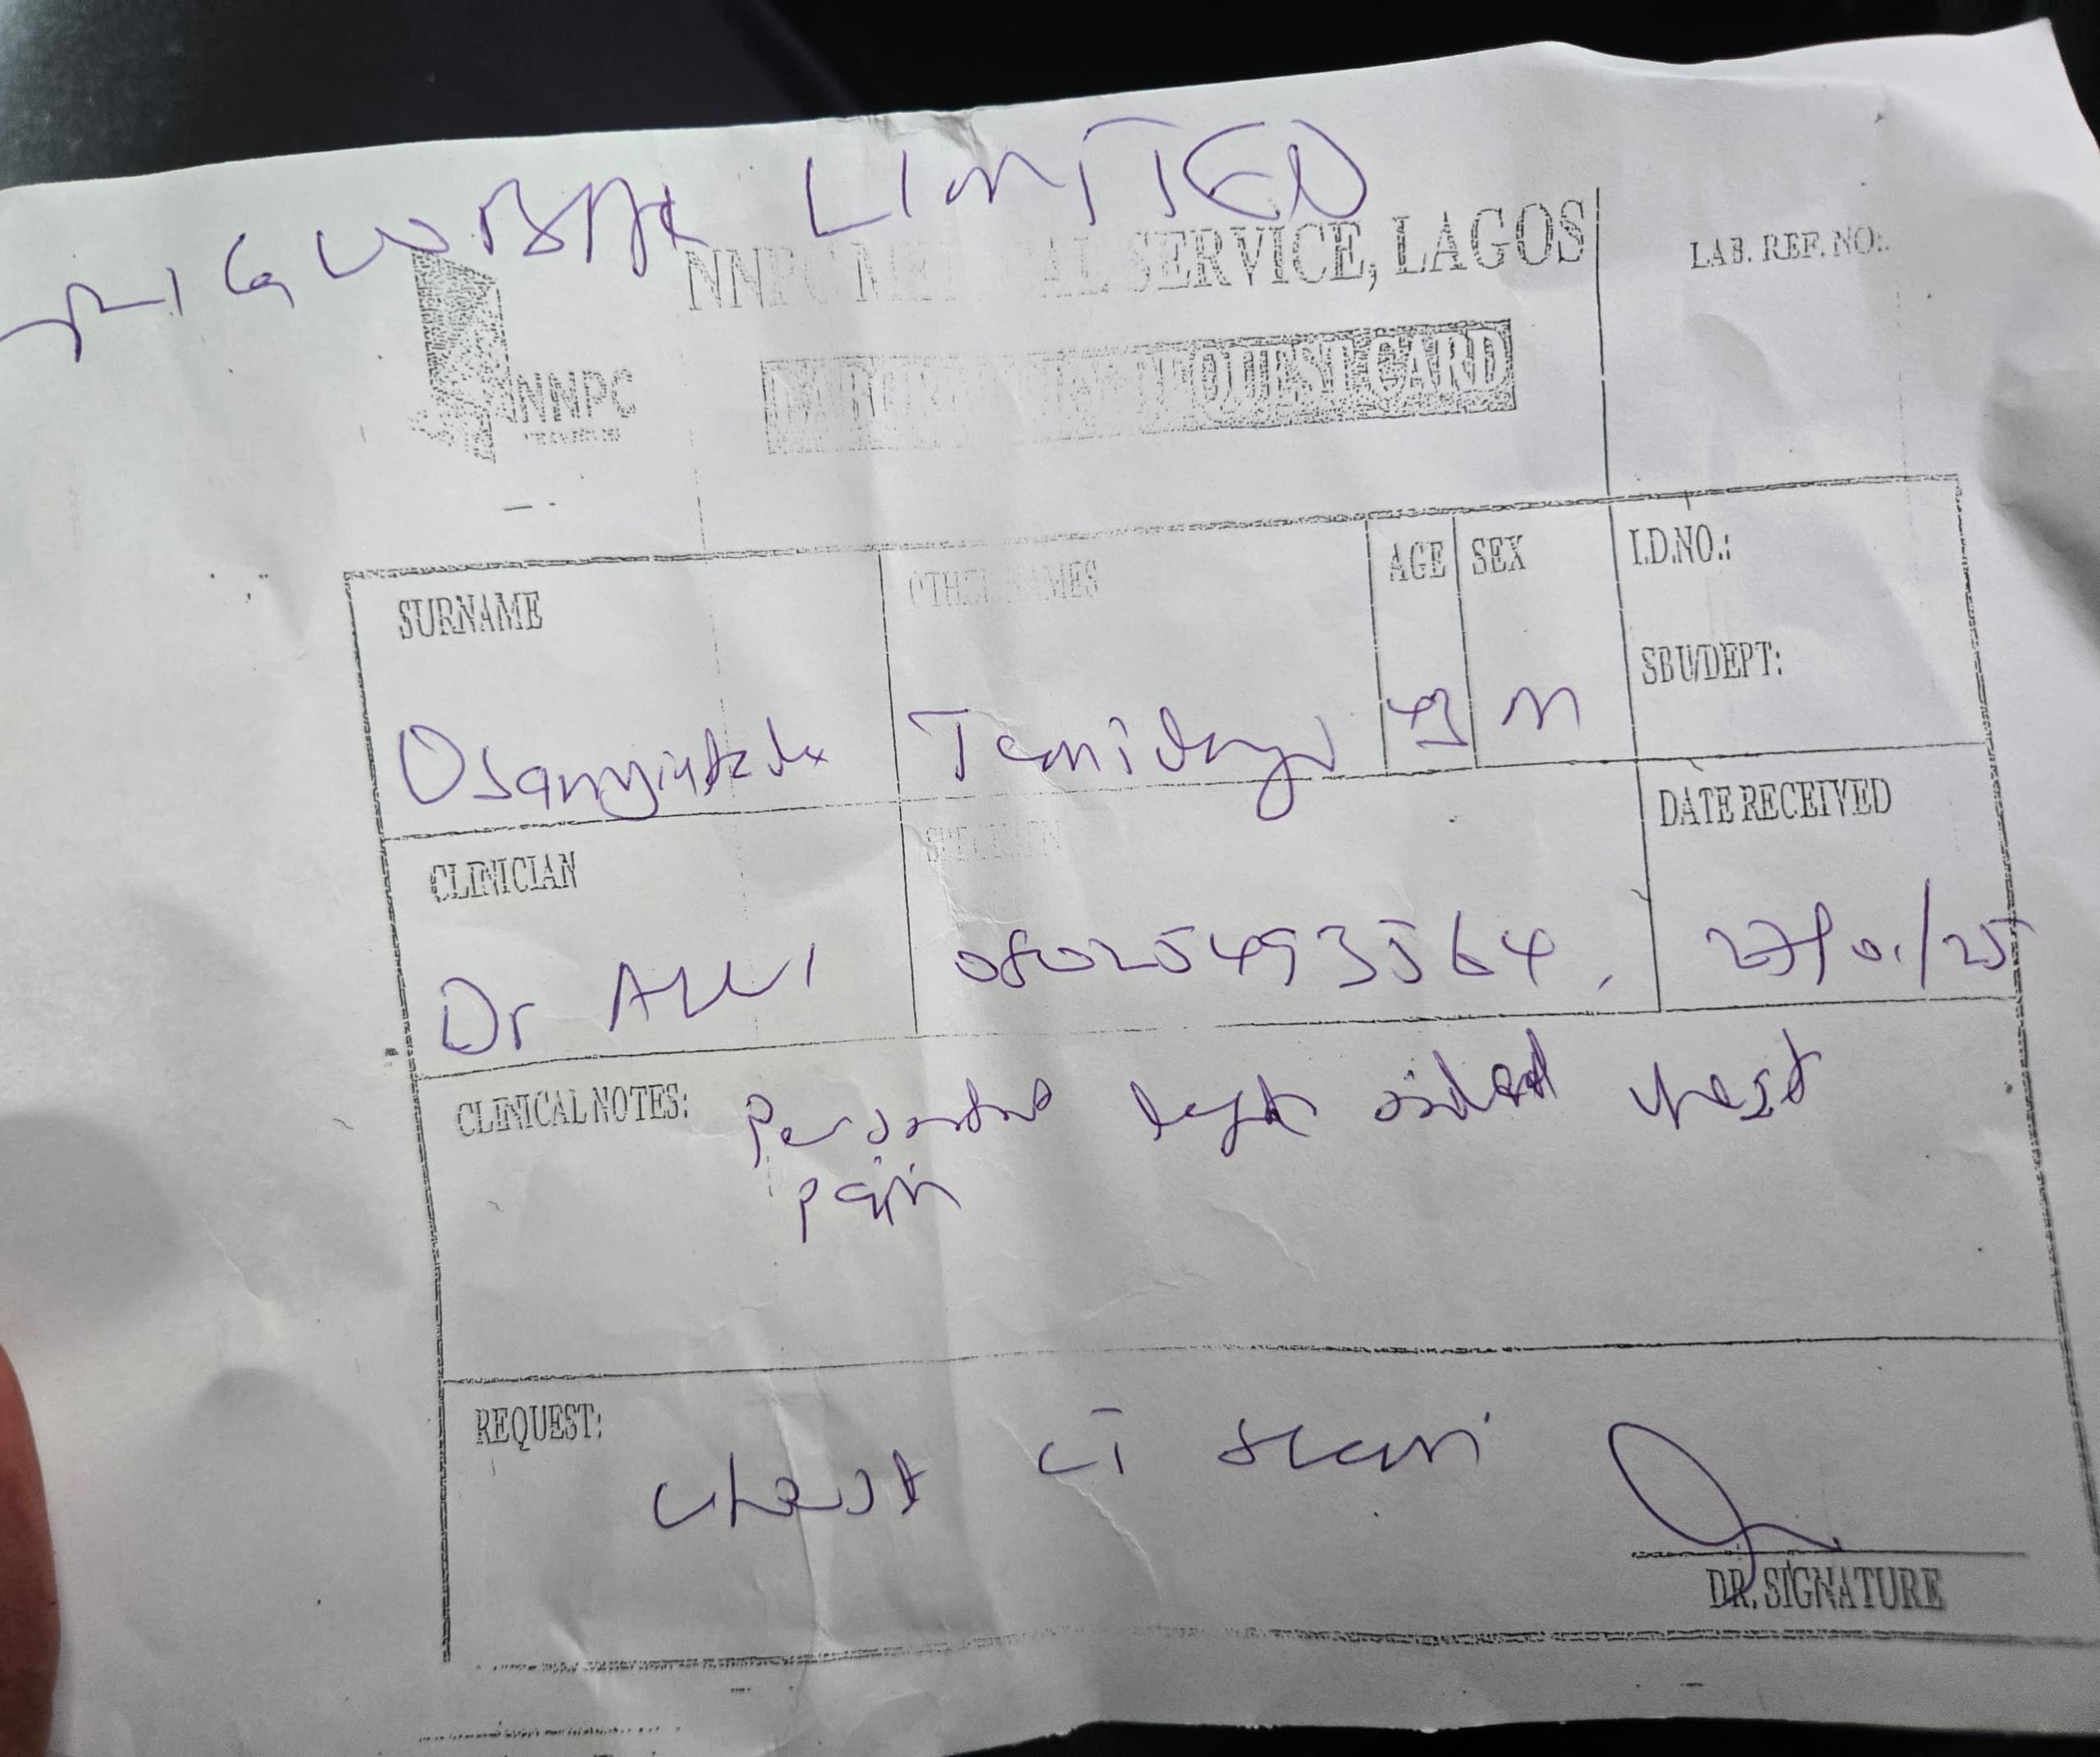 LIMITED
NNPC MEDICAL SERVICE, LAGOS
LAB. REF. NO:.
NNPC
LABORATORY REQUEST CARD
SURNAME
OTHER NAMES
AGE
SEX
I.D.NO.:
SBU/DEPT:
Temidayo
43
M
CLINICIAN
SPECIMEN
DATE RECEIVED
Dr
08025493564
27/01/25
CLINICAL NOTES: Persistent left sided chest
pain
REQUEST:
Chest CT scan
DR. SIGNATURE